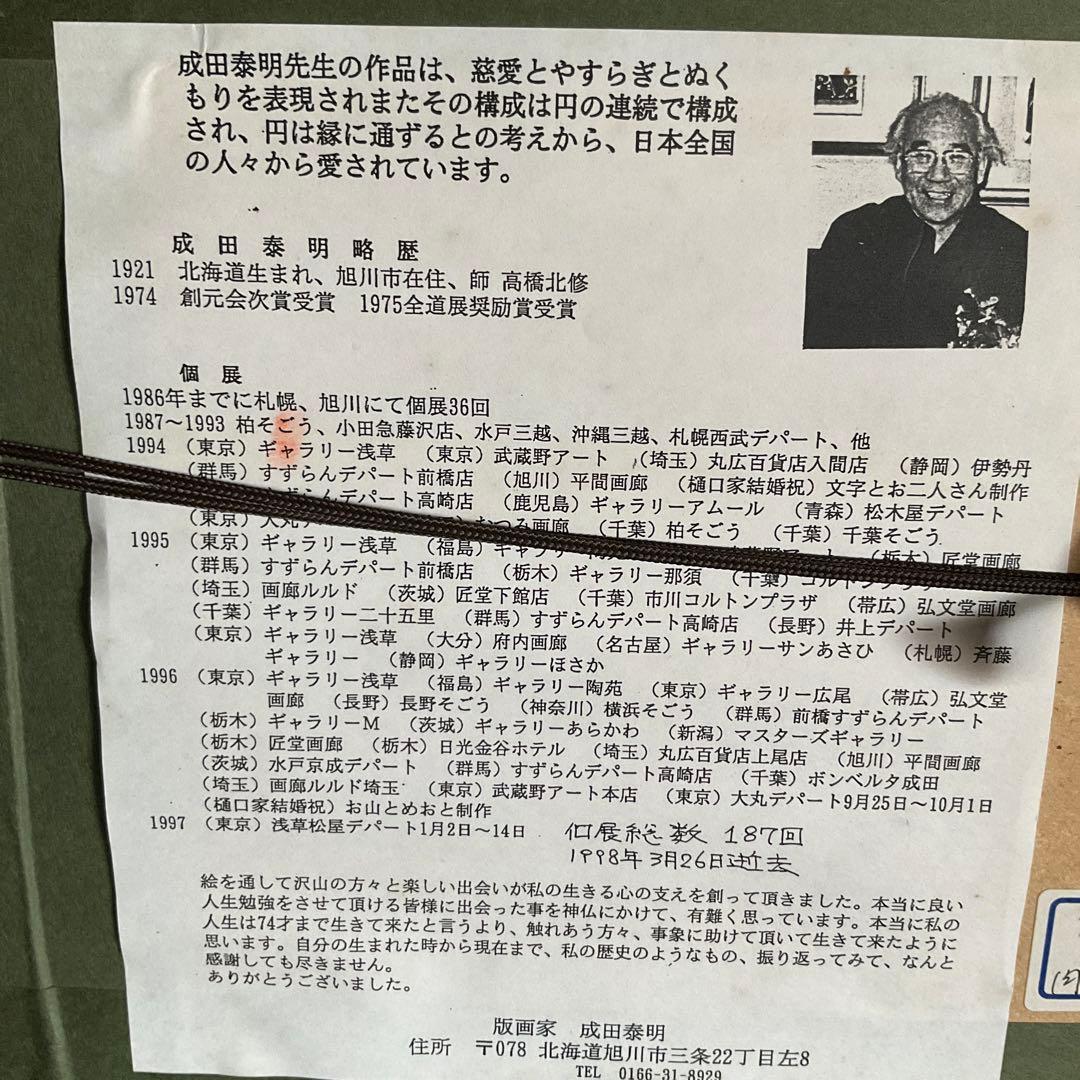 成田泰明先生の作品は、慈愛とやすらぎとぬく
もりを表現されまたその構成は円の連続で構成
され、円は縁に通ずるとの考えから、日本全国
の人々から愛されています。
成田泰明略歴
1921 北海道生まれ、旭川市在住、師 高橋北修
1974 創元会次賞受賞 1975全道展奨励賞受賞
個展
1986年までに札幌、旭川にて個展36回
1987～1993 柏そごう、小田急藤沢店、水戸三越、沖縄三越、札幌西武デパート、他
1994 （東京）ギャラリー浅草 （東京）武蔵野アート （埼玉）丸広百貨店入間店 （静岡）伊勢丹
（群馬）すずらんデパート前橋店 （旭川）平間画廊 （樋口家結婚祝）文字とお二人さん制作
すずらんデパート高崎店 （鹿児島）ギャラリーアムール （青森）松木屋デパート
（東京）大丸 おつみ画廊 （千葉）柏そごう （千葉）千葉そごう
1995 （東京）ギャラリー浅草 （福島）ギャラリー （栃木）匠堂画廊
（群馬）すずらんデパート前橋店 （栃木）ギャラリー那須 （千葉）コルトン
（埼玉）画廊ルルド （茨城）匠堂下館店 （千葉）市川コルトンプラザ （帯広）弘文堂画廊
（千葉）ギャラリー二十五里 （群馬）すずらんデパート高崎店 （長野）井上デパート
（東京）ギャラリー浅草 （大分）府内画廊 （名古屋）ギャラリーサンあさひ （札幌）斉藤
ギャラリー （静岡）ギャラリーほさか
1996 （東京）ギャラリー浅草 （福島）ギャラリー陶苑 （東京）ギャラリー広尾 （帯広）弘文堂
画廊 （長野）長野そごう （神奈川）横浜そごう （群馬）前橋すずらんデパート
（栃木）ギャラリーM （茨城）ギャラリーあらかわ （新潟）マスターズギャラリー
（栃木）匠堂画廊 （栃木）日光金谷ホテル （埼玉）丸広百貨店上尾店 （旭川）平間画廊
（茨城）水戸京成デパート （群馬）すずらんデパート高崎店 （千葉）ボンベルタ成田
（埼玉）画廊ルルド埼玉 （東京）武蔵野アート本店 （東京）大丸デパート9月25日～10月1日
（樋口家結婚祝）お山とめおと制作
1997 （東京）浅草松屋デパート1月2日～14日 個展総数 187回
1998年3月26日逝去
絵を通して沢山の方々と楽しい出会いが私の生きる心の支えを創って頂きました。本当に良い
人生勉強をさせて頂ける皆様に出会った事を神仏にかけて、有難く思っています。本当に私の
人生は74才まで生きて来たと言うより、触れあう方々、事象に助けて頂いて生きて来たように
思います。自分の生まれた時から現在まで、私の歴史のようなもの、振り返ってみて、なんと
感謝しても尽きません。
ありがとうございました。
版画家 成田泰明
住所 〒078 北海道旭川市三条22丁目左8
TEL 0166-31-8929